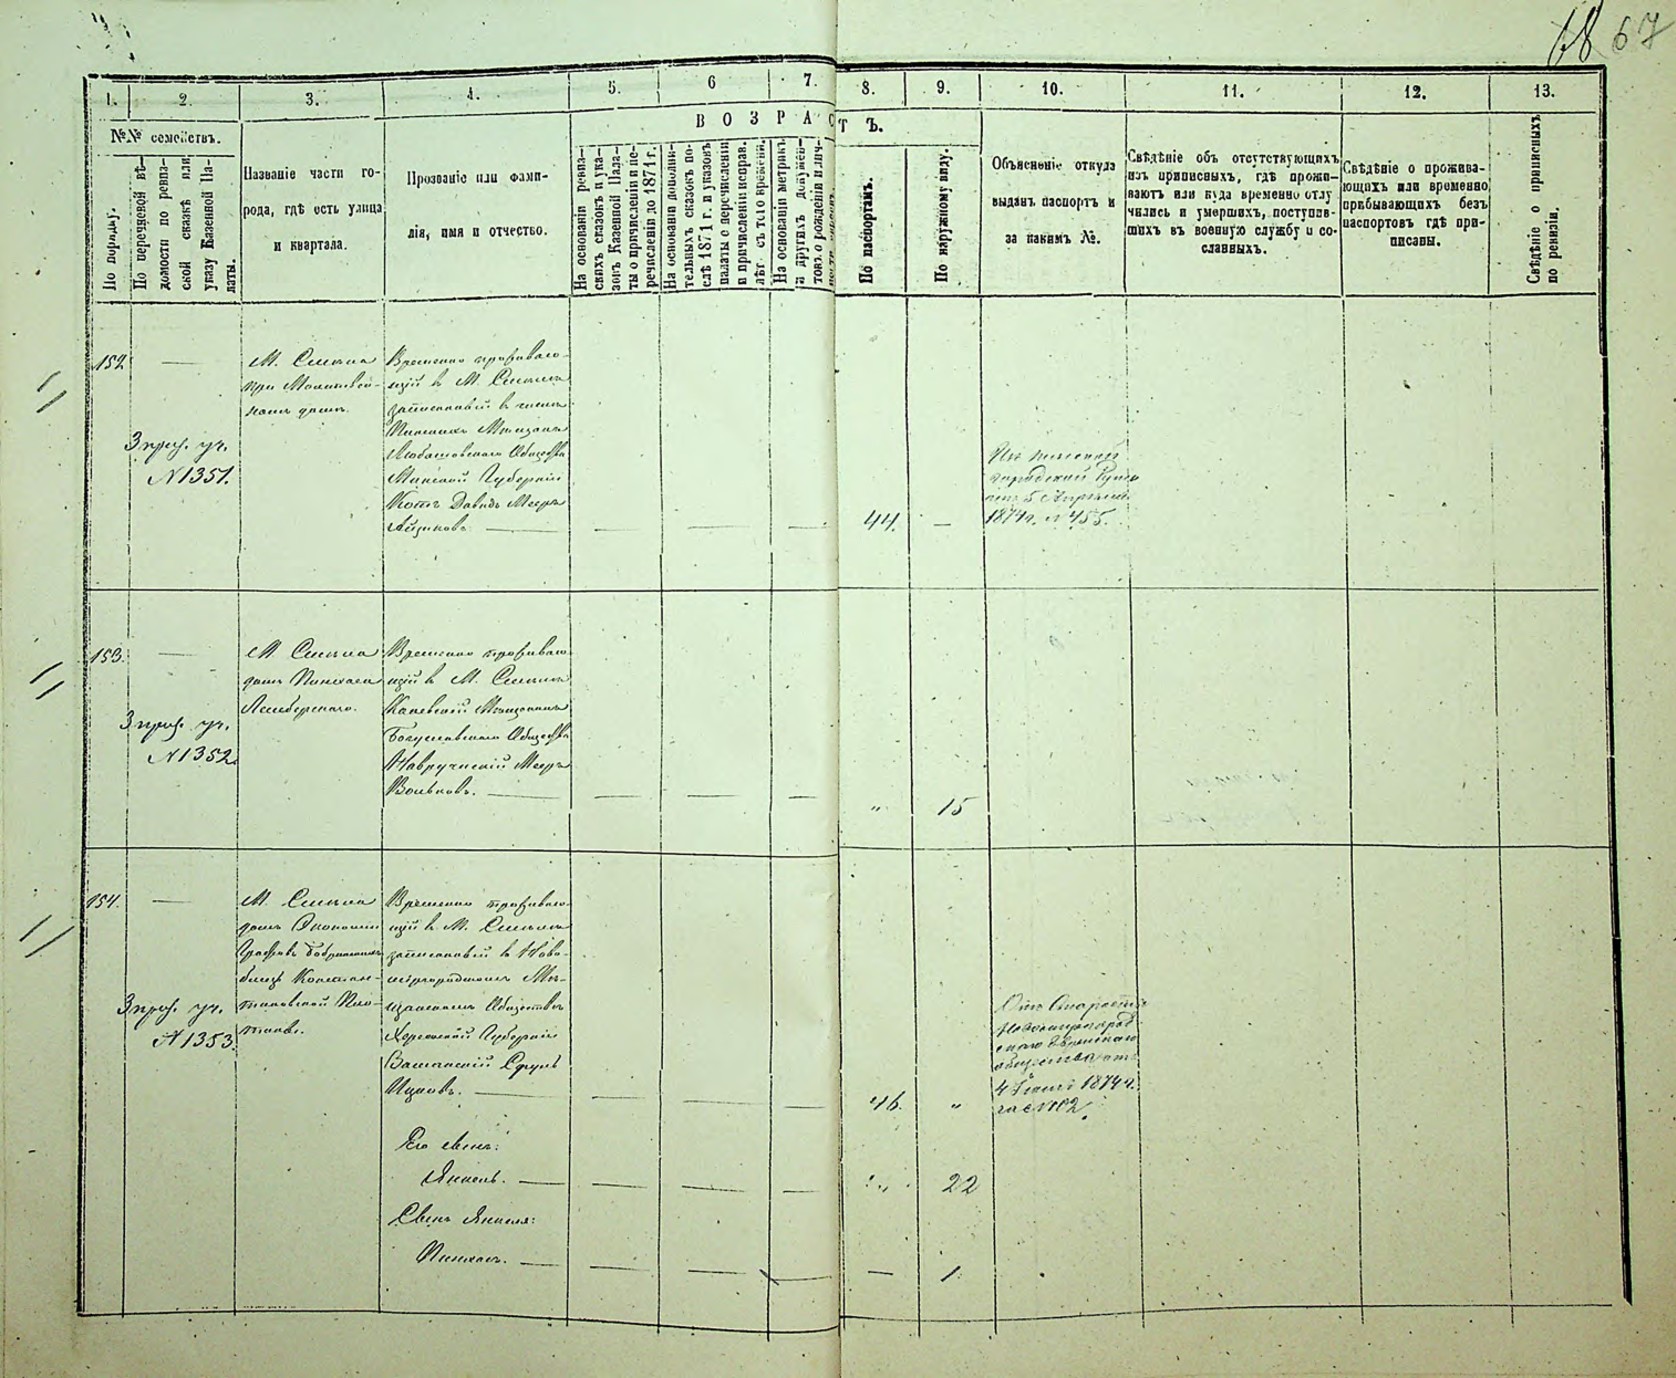 68 67
1. 2. 3. 4. 5. 6 7. 8. 9. 10. 11. 12. 13.
№№ семействъ.
По порядку.
По перечневой вѣ-
домости по ревиз-
ской сказкѣ или
указу Казенной Па-
латы.
Названіе части го-
рода, гдѣ есть улица
и квартала.
Прозваніе или фами-
лія, имя и отчество.
ВОЗРАСТЪ.
На основаніи ревиз-
скихъ сказокъ и ука-
зовъ Казенной Пала-
ты о причисленіи и пе-
речисленіи до 1871 г.
На основаніи дополни-
тельныхъ сказокъ по-
слѣ 1871 г. и указовъ
палаты о перечисленіи
и причисленіи исправ.
лѣт. съ того времени.
На основаніи метрикъ
и другихъ докумен-
товъ о рожденіи и лич-
По паспортамъ.
По наружному виду.
Объясненіе откуда
выданъ паспортъ и
за какимъ №.
Свѣдѣніе объ отсутствующихъ
изъ приписныхъ, гдѣ прожи-
ваютъ или куда временно отлу
чились и умершихъ, поступив-
шихъ въ военную службу и со-
сланныхъ.
Свѣдѣніе о прожива-
ющихъ или временно
пребывающихъ безъ
паспортовъ гдѣ при-
писаны.
Свѣдѣніе о приписныхъ
по ревизіи.
152 —
3 приз. уч.
№1351.
М. Смѣла
при Молитвен-
номъ домѣ.
Временно проживаю-
щій в М. Смѣлѣ
записанный в числѣ
Пинскихъ Мѣщанъ
Общества
Минской Губерніи
Котъ Давидъ Мееръ
Айзиковъ — — — —
44. —
городской
5 Апрѣля
1874 г. №455.
153. —
3 приз. уч.
№1352.
М. Смѣла
домъ Пинхаса
Временно проживаю
щій в М. Смѣлѣ
Каневскій Мѣщанинъ
Богуславскаго Общества
Навручскій Мееръ
Вольковъ. — — — —
„ 15
154. —
3 приз. уч.
№1353.
М. Смѣла
домъ Экономіи
Графовъ Бобринскихъ
близъ Констан-
тиновской План-
таціи.
Временно проживаю-
щій в М. Смѣлѣ
записанный в Ново-
миргородскомъ Мѣ-
щанскомъ Обществѣ
Херсонской Губерніи
Срулъ
Ицковъ. — — — —
46. „
Отъ Старосты
Новомиргород
скаго Еврейскаго
общества отъ
4 1874 г.
за №102.
Его сынъ:
Янкель. — — — —
„ 22
Сынъ Янкеля:
Пинхасъ. — — — —
— 1.